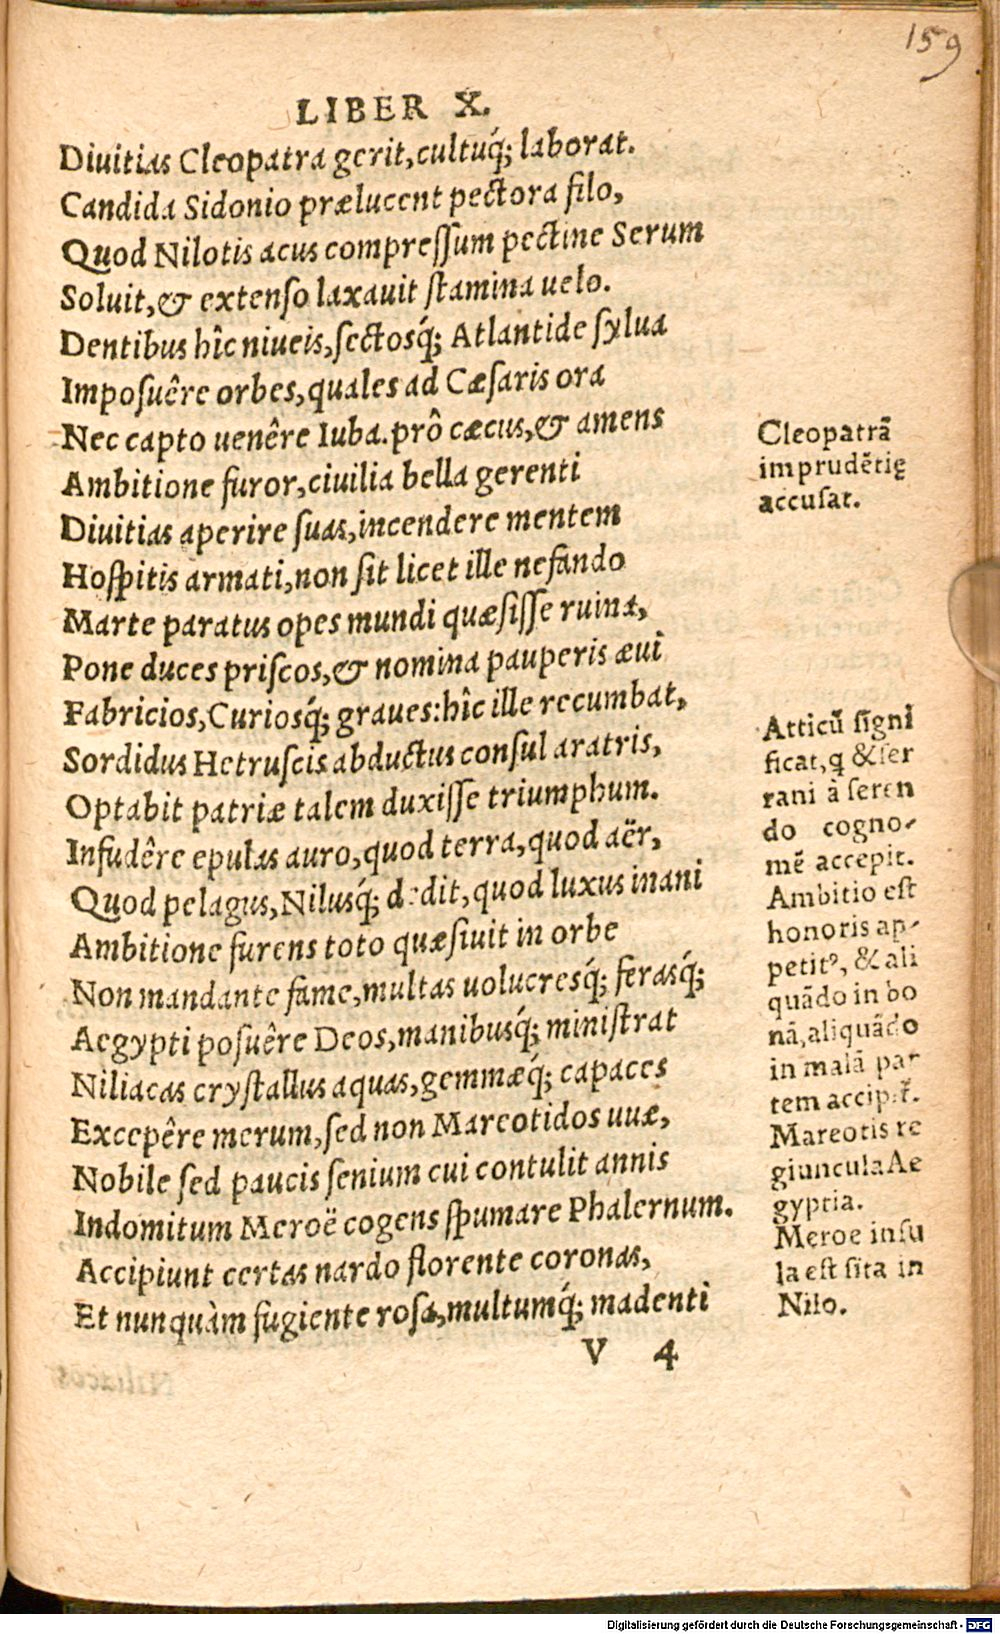 159
LIBER X.
Diuitias Cleopatra gerit, cultuq́; laborat.
Candida Sidonio prælucent pectora filo,
Quod Nilotis acus compreſſum pectine Serum
Soluit, & extenso laxauit ſtamina uelo.
Dentibus hîc niueis, ſectosq́; Atlantide ſylua
Impoſuêre orbes, quales ad Cæſaris ora
Nec capto uenêre Iuba. prô cæcus, & amens
Ambitione furor, ciuilia bella gerenti
Diuitias aperire ſuas, incendere mentem
Hoſpitis armati, non ſit licet ille nefando
Marte paratus opes mundi quæſiſſe ruina,
Pone duces priſcos, & nomina pauperis æui
Fabricios, Curiosq́; graues: hîc ille recumbat,
Sordidus Hetruſcis abductus conſul aratris,
Optabit patriæ talem duxiſſe triumphum.
Infudêre epulas auro, quod terra, quod aër,
Quod pelagus, Nilusq́; dedit, quod luxus inani
Ambitione furens toto quæſiuit in orbe
Non mandante fame, multas uolucresq́; ferasq́;
Aegypti poſuêre Deos, manibusq́; miniſtrat
Niliacas cryſtallus aquas, gemmæq́; capaces
Excepêre merum, ſed non Mareotidos uuæ,
Nobile ſed paucis ſenium cui contulit annis
Indomitum Meroë cogens ſpumare Phalernum.
Accipiunt certas nardo florente coronas,
Et nunquàm fugiente roſa, multumq́; madenti
V 4
Cleopatrã
imprudẽtię
accuſat.
Atticũ ſigni
ficat, q &ſer
rani à ſeren
do cogno-
mẽ accepit.
Ambitio eſt
honoris ap-
petitꝰ, & ali
quãdo in bo
nã, aliquãdo
in malã par
tem accipit̃.
Mareotis re
giuncula Ae
gyptia.
Meroe inſu
la eſt ſita in
Nilo.
Digitalisierung gefördert durch die Deutsche Forschungsgemeinschaft - DFG